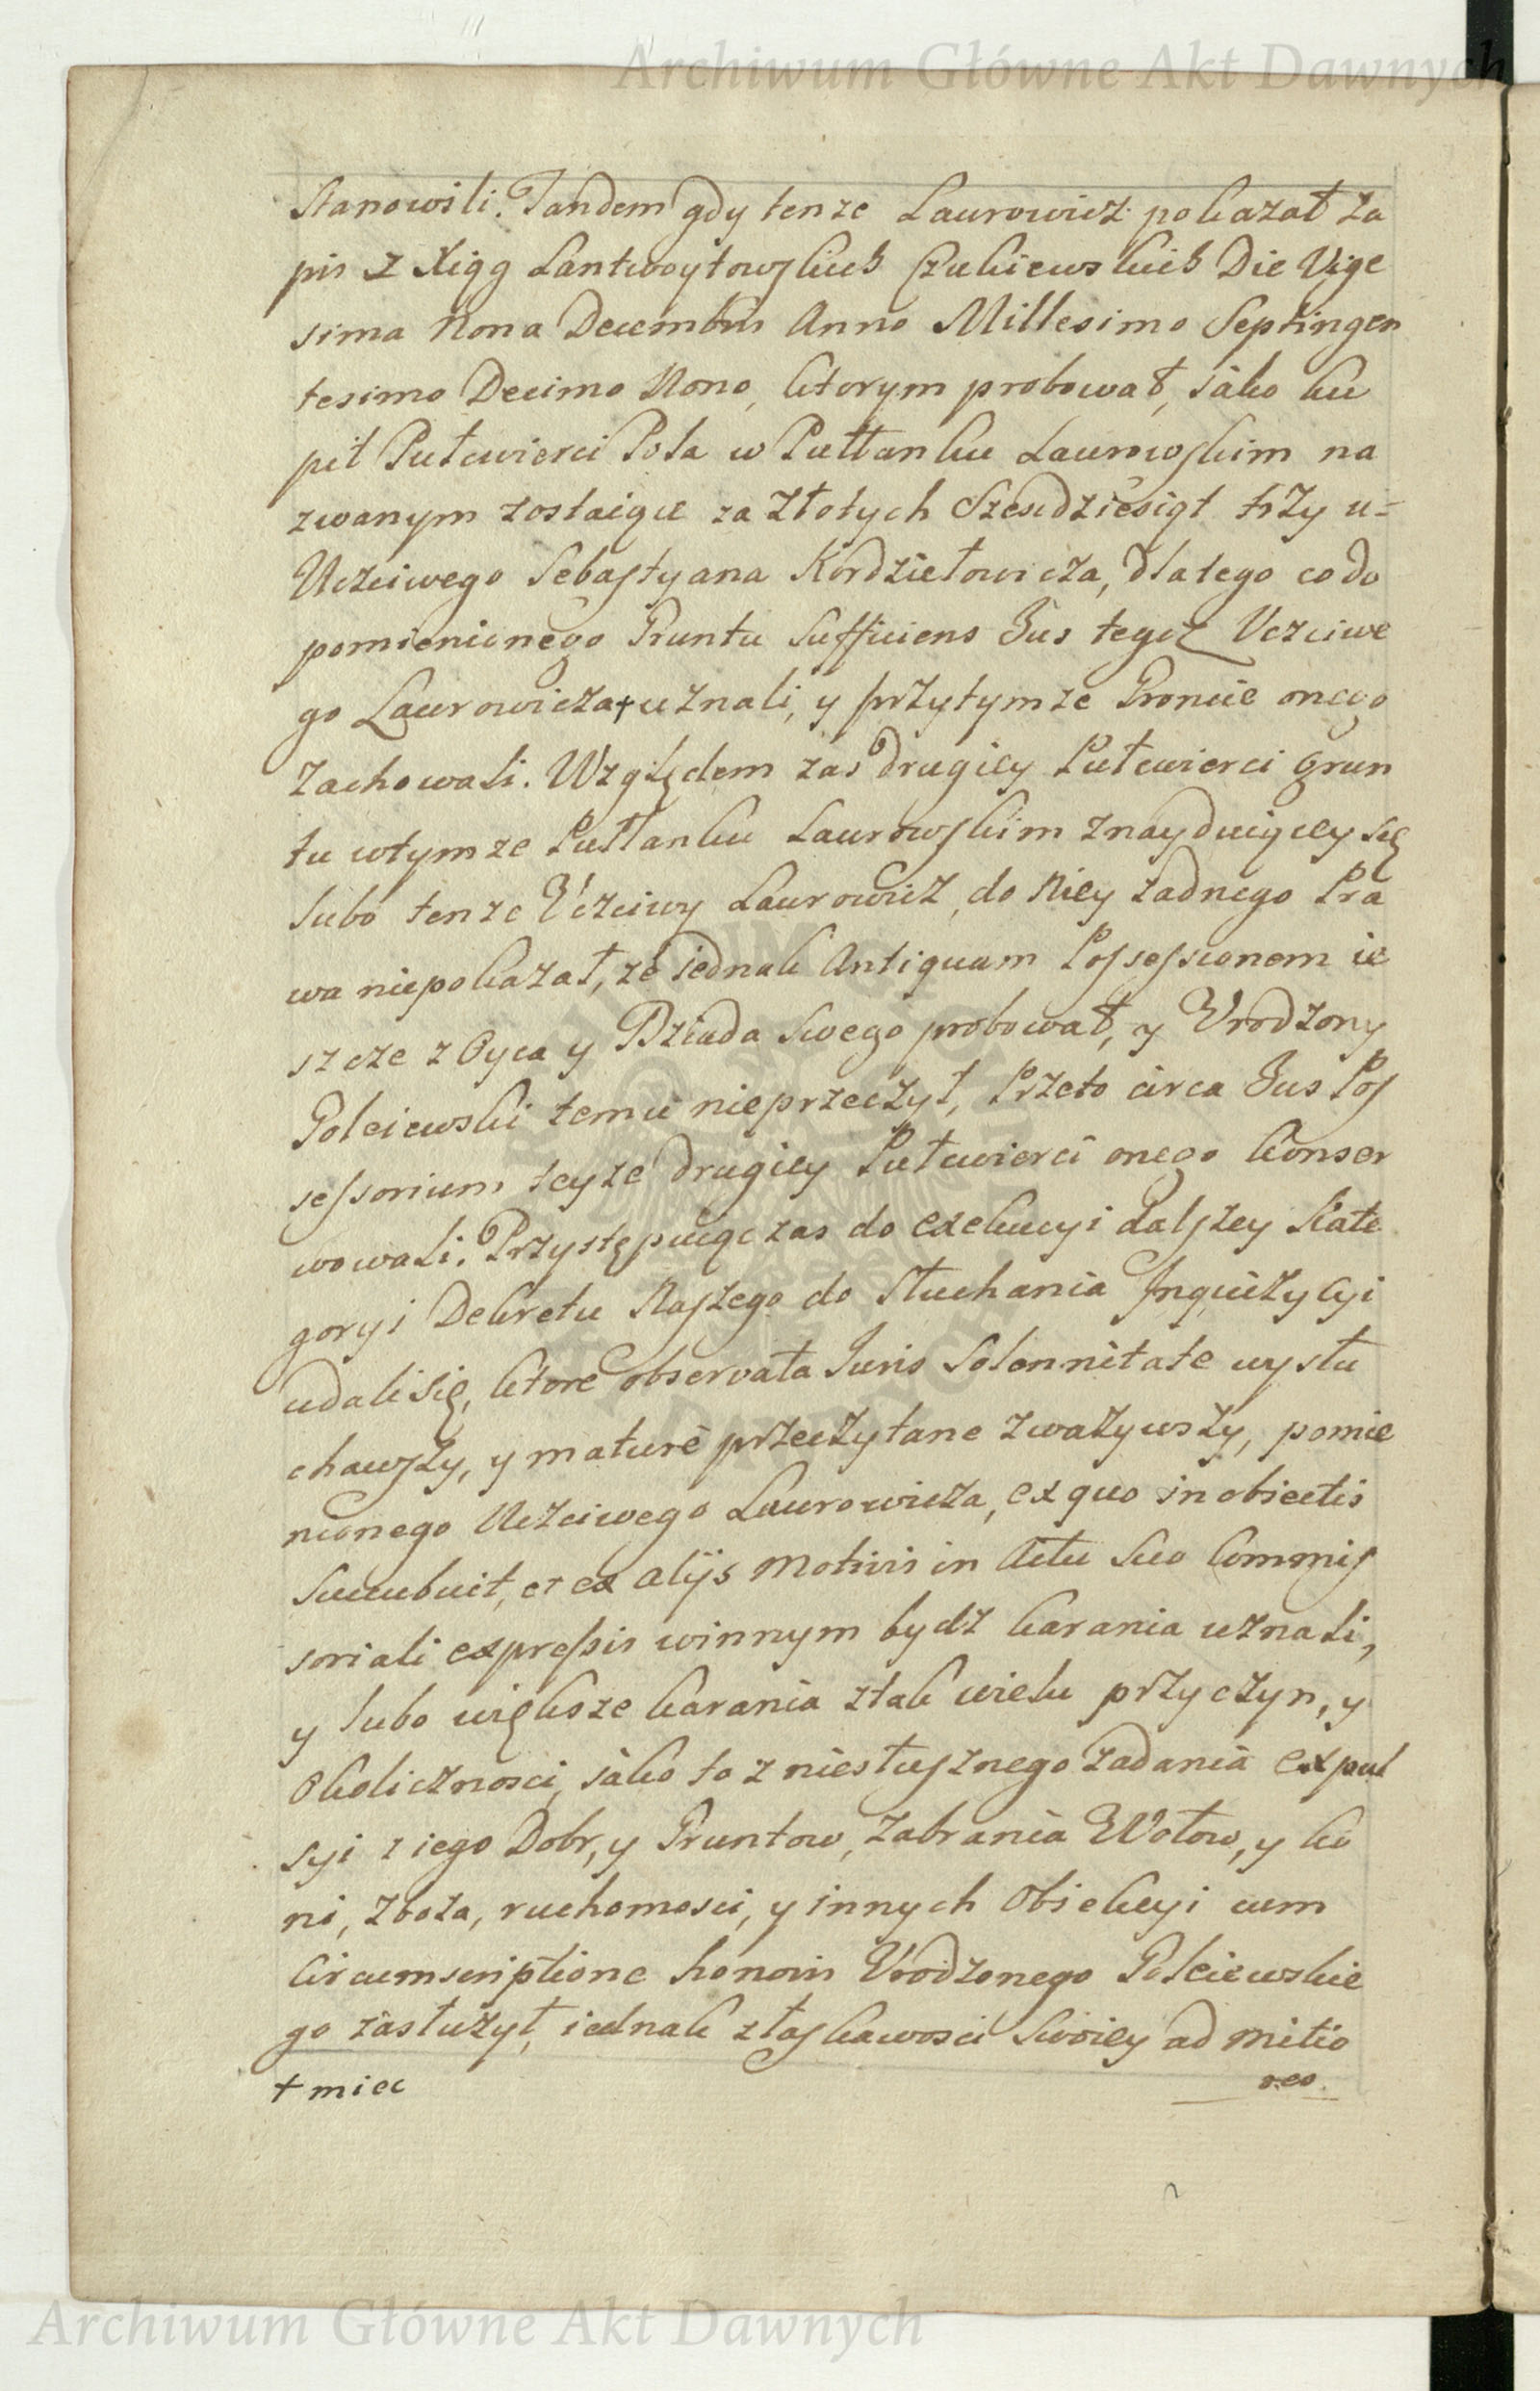 Archiwum Główne Akt Dawnych
stanowili. Tandem gdy tenze Laurowicz pokazał za
pis z Xiąg Lantwoytowskich Czukiewskich Die Vige
sima Nona Decembris Anno Millesimo Septingen
tesimo Decimo Nono, ktorym probował, iako ku
pił Pułcwierci Pola w Pułłanku Laurowskim na
zwanym zostaiące za Złotych Szescdziesiąt trzy u=
Uczciwego Sebastyana Kordziełowicza, dlatego co do
pomienionego Gruntu Sufficiens Jus tegoż Uczciwe
go Laurowicza + uznali, y przytymze Groncie onego
Zachowali. Względem zas drugiey Pułcwierci Grun
tu wtymze Pułłanku Laurowskim znayduiącey się
lubo tenze Uczciwy Laurowicz, do Niey zadnego Pra
wa niepokazał, ze iednak Antiquam Possessionem ie
szcze z Oyca y Dziada swego probował, y Urodzony
Goleiewski temu nieprzeczył, Przeto circa Jus Pos
sessorium teyze drugiey Pułcwierci onego konser
wowali. Przystępuiąc zas do exekucyi dalszey Kate
goryi Dekretu Naszego do Słuchania Inquizycyi
udali się, ktore observata Juris Solennitate wysłu
chawszy, y maturè przeczytane zwazywszy, pomie
nionego Uczciwego Laurowicza, ex quo in obiectis
succubuit, et ex alijs Motivis in Actu suo Commis
soriali expressis winnym bydz karania uznali,
y lubo większe karania ztak wielu przyczyn, y
okolicznosci, iako to z niesłusznego zadania expul
syi z iego Dobr, y Gruntow, zabrania Wołow, y ko
ni, zboza, ruchomosci, y innych Obiekcyi cum
Circumscriptione honoris Urodzonego Goleiewskie
go zasłużył, iednak złaskawosci swoiey ad mitio
+ miec
rea
Archiwum Główne Akt Dawnych